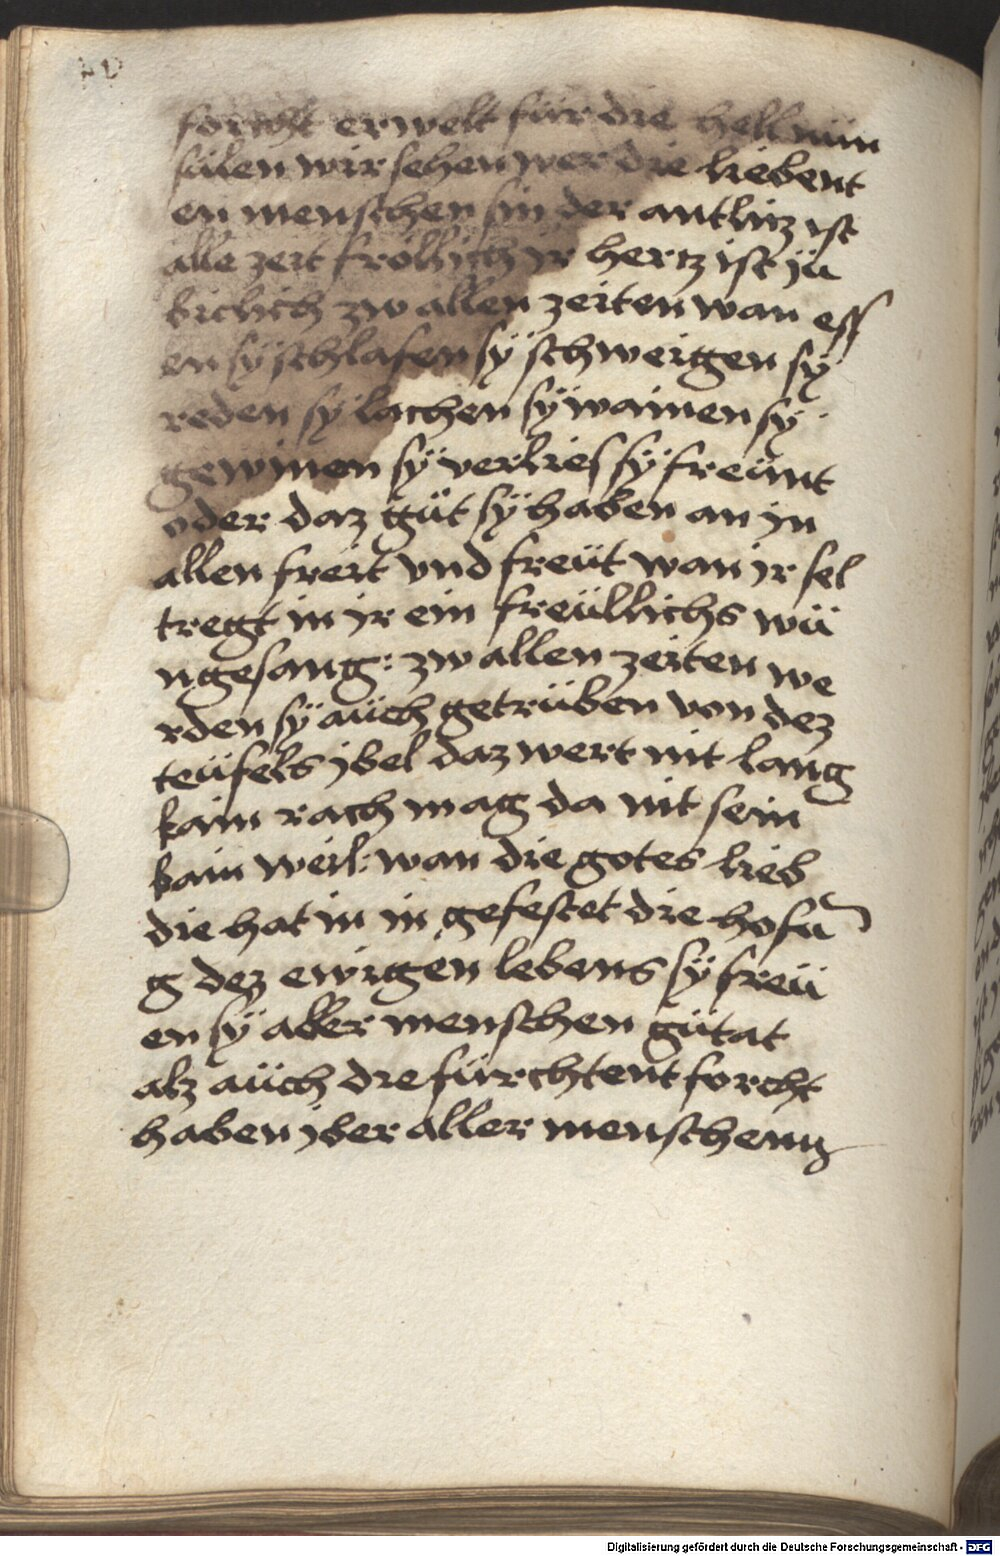 forcht erwelt für die hell nun
sülen wir sehen wer die liebent
en menschen sin der antlitz ist
alle zeit fröllich ir hertz ist jü
biclich zw allen zeiten wan ess
en sÿ schlafen sÿ schweigen sÿ
reden sÿ lachen sÿ wainen sÿ
gewinen sÿ verlies sÿ freünt
oder daz güt sÿ haben an jn
allen freit vnd freüt wan jr sel
tregt in jr ein freüllichs wü
ngesang: zw allen zeiten we
rden sÿ aüch getrüben von dez
teüfels jbel daz wert nit lang
kain rach mag da nit sein
kain weil: wan die gotes lieb
die hat in in gefestet die hofu̅
g dez ewigen lebens sÿ freü
en sÿ aller menschen gütat
alz aüch die fürchtent forcht
haben jber aller menschenn
Digitalisierung gefördert durch die Deutsche Forschungsgemeinschaft - DFG